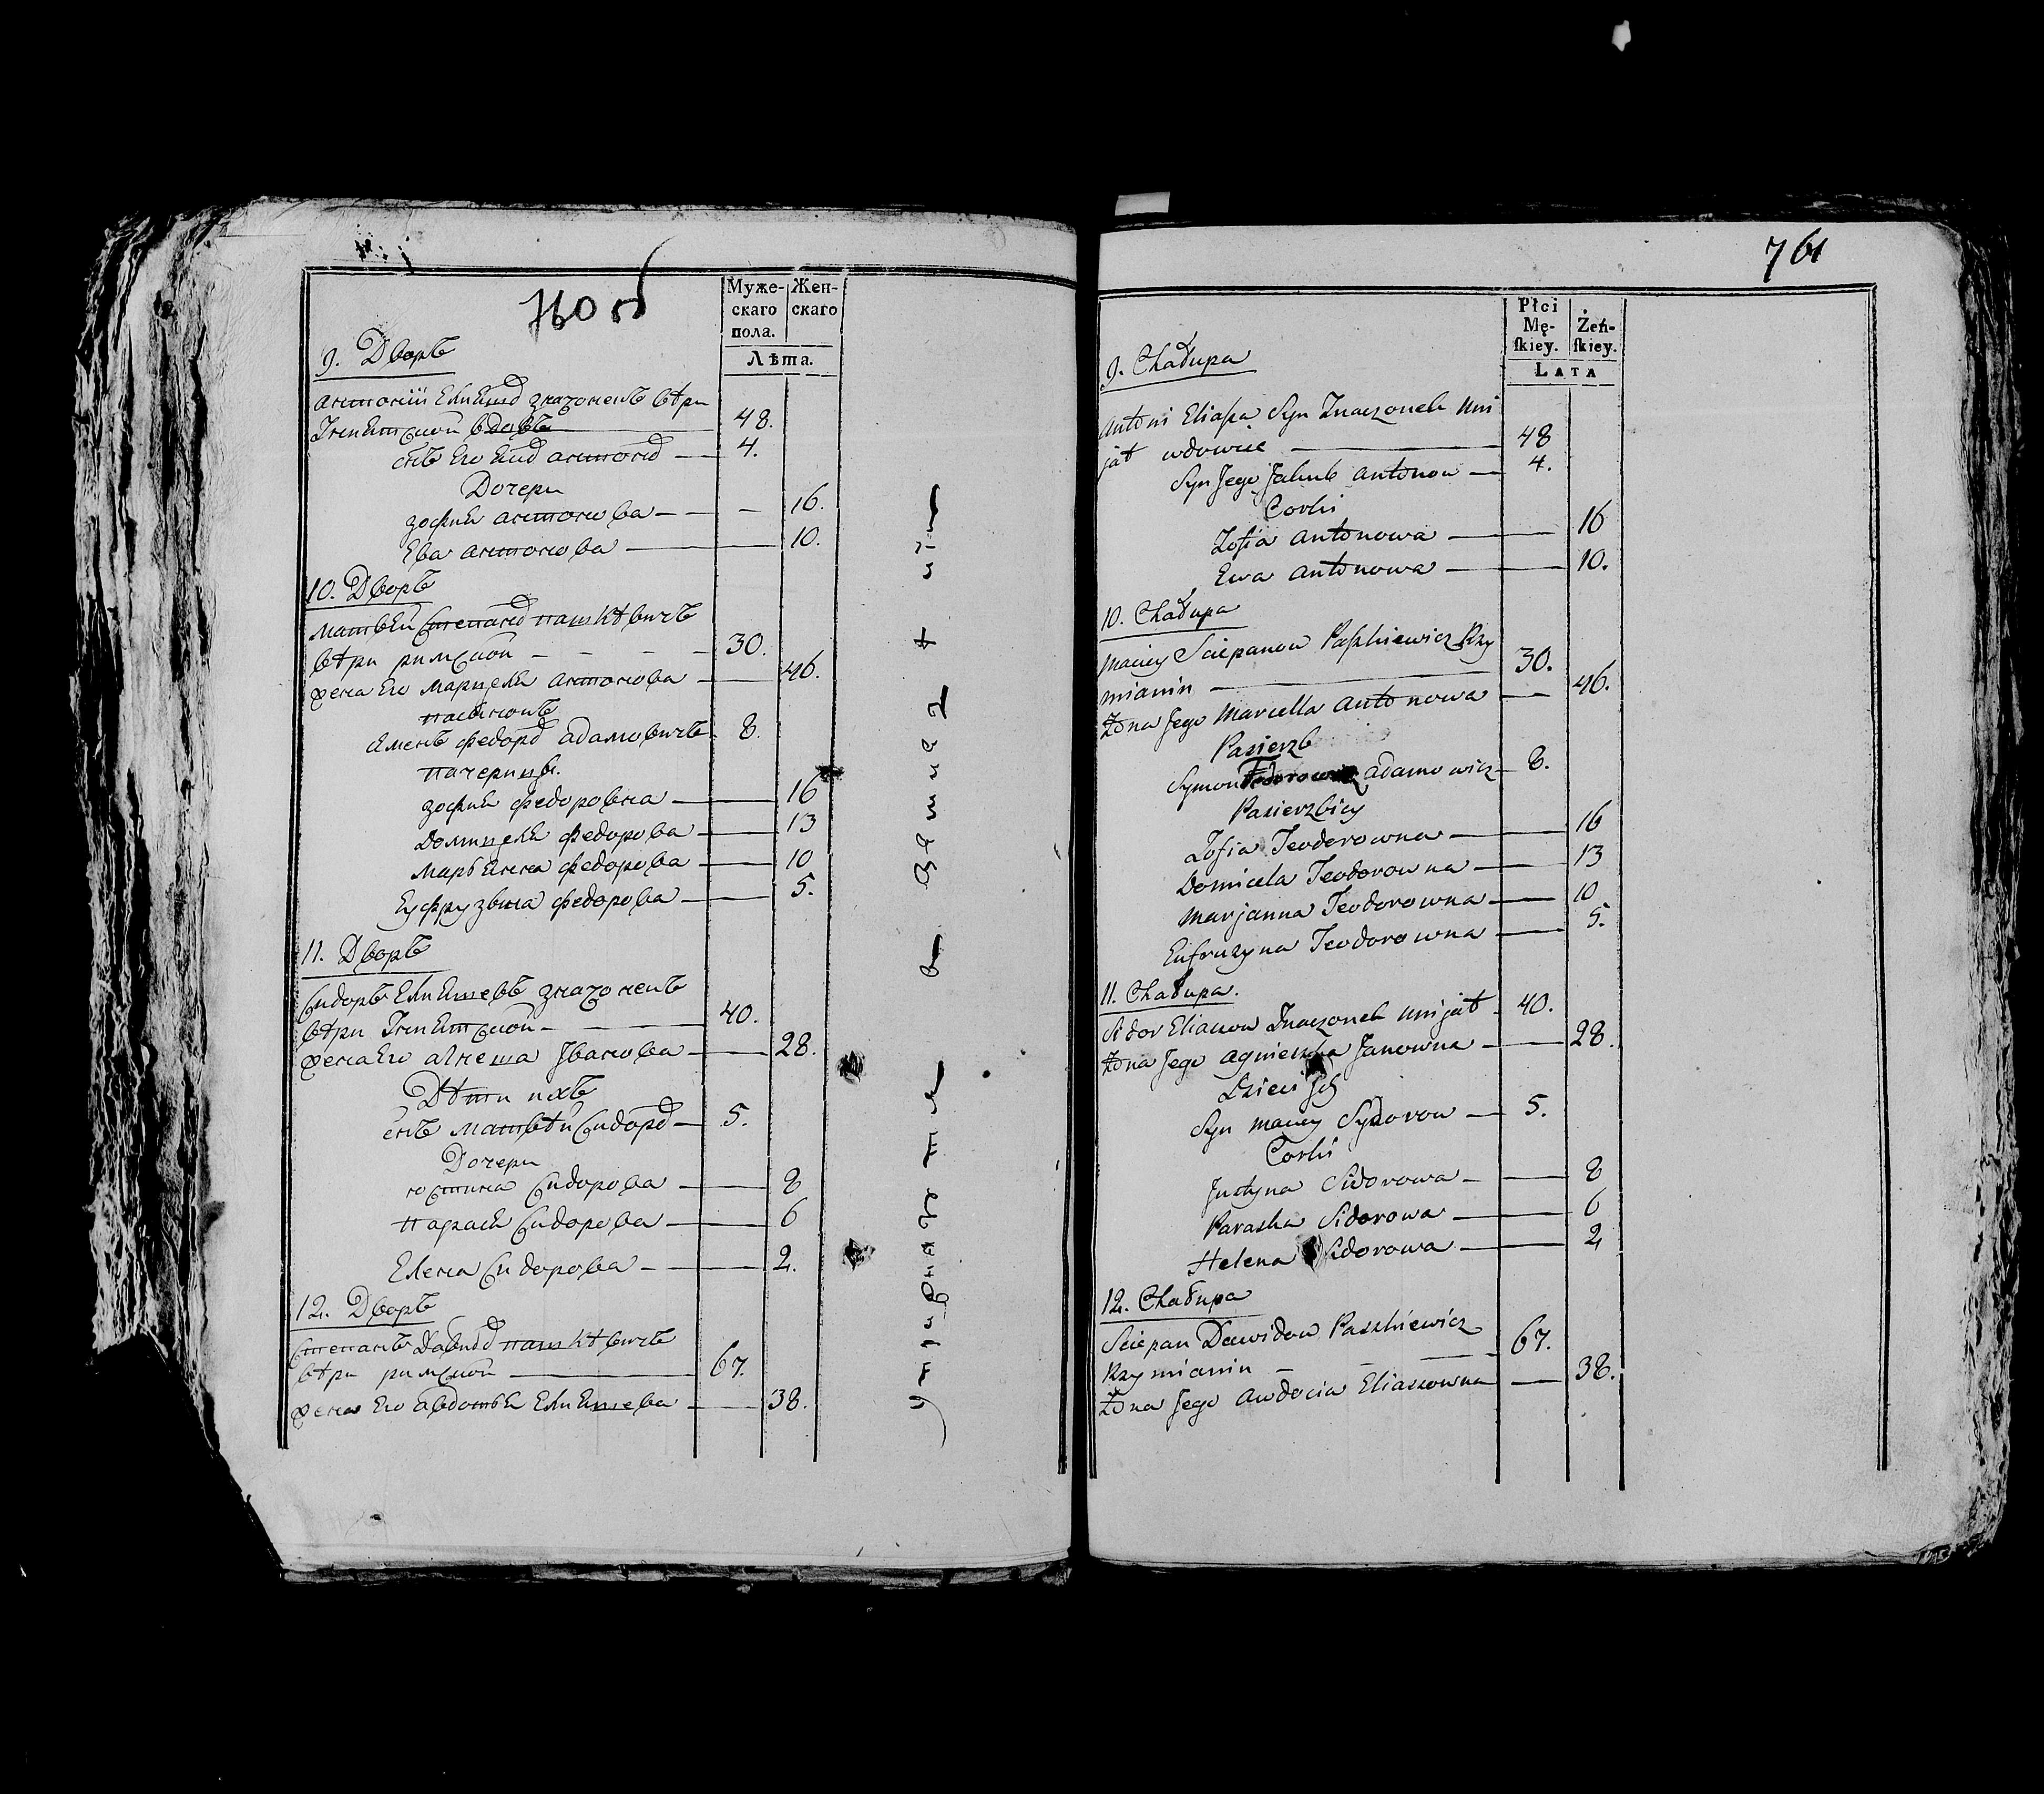 760 об
Муже-
скаго
пола.
Жен-
скаго
Лѣта.
9. Дворъ
Антоній Еліяша Значонекъ вѣри
Іуніятской вдовъ 48.
сынъ Его Якубъ Антоновъ 4.
Дочери
Зофия Антонова 16.
Ева Антонова 10.
10. Дворъ
Матвей Степановъ Пашкѣвичъ
вѣри римской 30.
жена Его Марцеля Антонова 46.
Пасынокъ
Семенъ Федоровъ Адамовичъ 8.
Пачерицы.
Зофия Федоровна 16
Домицеля Федорова 13
Марьянна Федорова 10
Еуфрузына Федорова 5.
11. Дворъ
Сидоръ Еліяшевъ Значонекъ
вѣри Іуніятской 40.
жена Его Агнеша Іванова 28.
Дѣти ихъ
сынъ Матвѣй Сидоровъ 5.
Дочери
Юстина Сидорова 8
Парася Сидорова 6
Елена Сидорова 2.
12. Дворъ
Степанъ Давидовъ Пашкѣвичъ
вѣри римской 67.
жена Его Авдотья Еліяшева 38.
761
Płci
Mę-
ſkiey.
Żeń-
ſkiey.
LATA
9. Chałupa
Antoni Eliaſza Syn Znaczonek Uni
jat wdowiec 48
Syn Jego Jakub Antonow 4.
Corki
Zofia Antonowa 16
Ewa Antonowa 10.
10. Chałupa
Maciey Sciepanow Paſzkiewicz Rzy
mianin 30.
Żona Jego Marcella Antonowa 46.
Pasierzb
Symon Fedorowicz Adamowicz 8.
Pasierzbicy
Zofia Teodorowna 16
Domicela Teodorowna 13
Marjanna Teodorowna 10
Eufruzyna Teodorowna 5.
11. Chałupa.
Sidor Eliaszow Znaczonek Unijat 40.
Żona Jego Agnieszka Janowna 28.
Dzieci Jch
Syn Maciey Sydorow 5.
Corki
Justyna Sidorowa 8
Paraska Sidorowa 6
Helena Sidorowa 2
12. Chałupa
Sciepan Dawidow Paszkiewicz
Rzymianin 67.
Żona Jego Awdocia Eliaszowna 38.